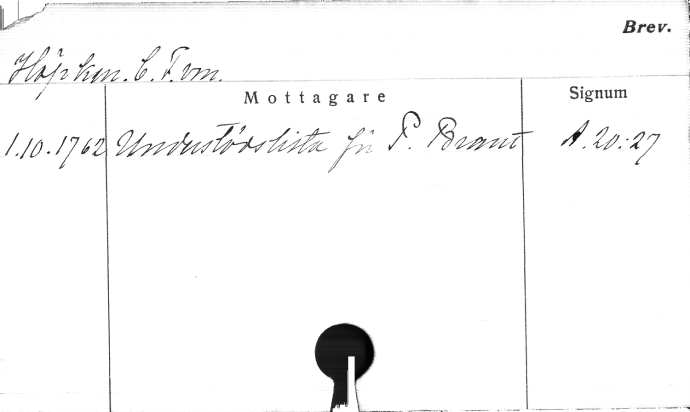 Brev.
Höpken. C. F. von.
Mottagare Signum
1.10.1762 Understödslista för P. Brant A.20:27